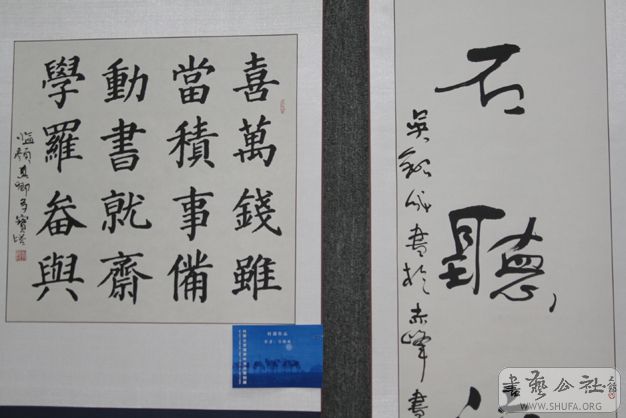 喜萬錢雖
當積事備
動書就齋
學羅畚與
临顏真卿多寶塔
聽
書於赤峰書
書藝公社
WWW.SHUFA.ORG